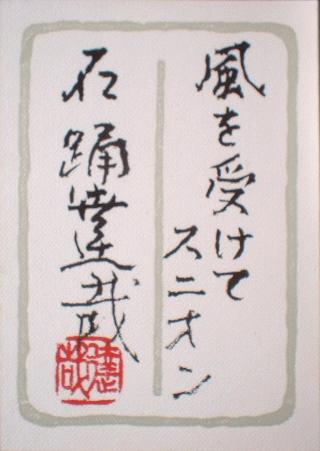 風を受けて
スニオン
石踊達哉
達哉